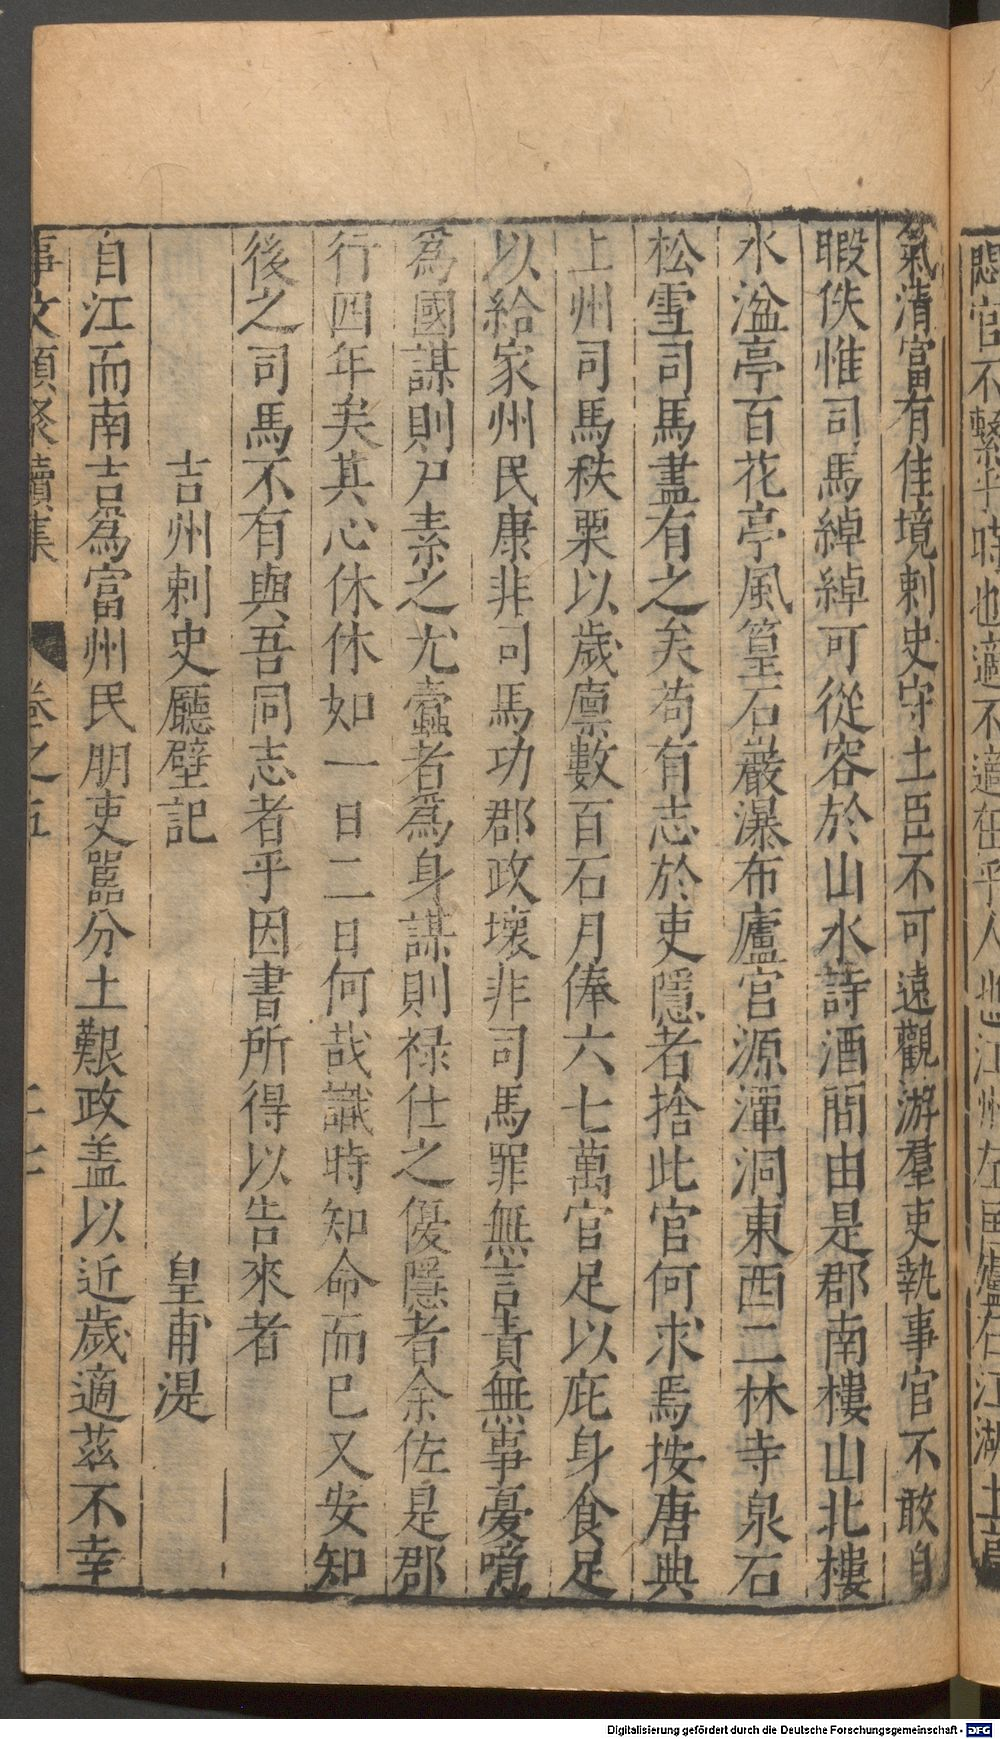 悶官不繫乎時也適不適在乎人也江州左匡廬右江湖土高
氣清富有佳境刺史守土臣不可遠觀游羣吏執事官不敢自
暇佚惟司馬綽綽可從容於山水詩酒間由是郡南樓山北樓
水湓亭百花亭風篁石巖瀑布廬宫源潭洞東西二林寺泉石
松雪司馬盡有之矣苟有志於吏隱者捨此官何求焉按唐典
上州司馬秩粟以歲廩數百石月俸六七萬官足以庇身食足
以給家州民康非司馬功郡政壞非司馬罪無言責無事憂噫
為國謀則尸素之尤蠹者為身謀則禄仕之優隱者余佐是郡
行四年矣其心休休如一日二日何哉識時知命而已又安知
後之司馬不有與吾同志者乎因書所得以告來者
吉州刺史廳壁記 皇甫湜
自江而南吉為富州民朋吏嚚分土艱政盖以近歲適茲不幸
事文類聚續集 卷之五
Digitalisierung gefördert durch die Deutsche Forschungsgemeinschaft - DFG